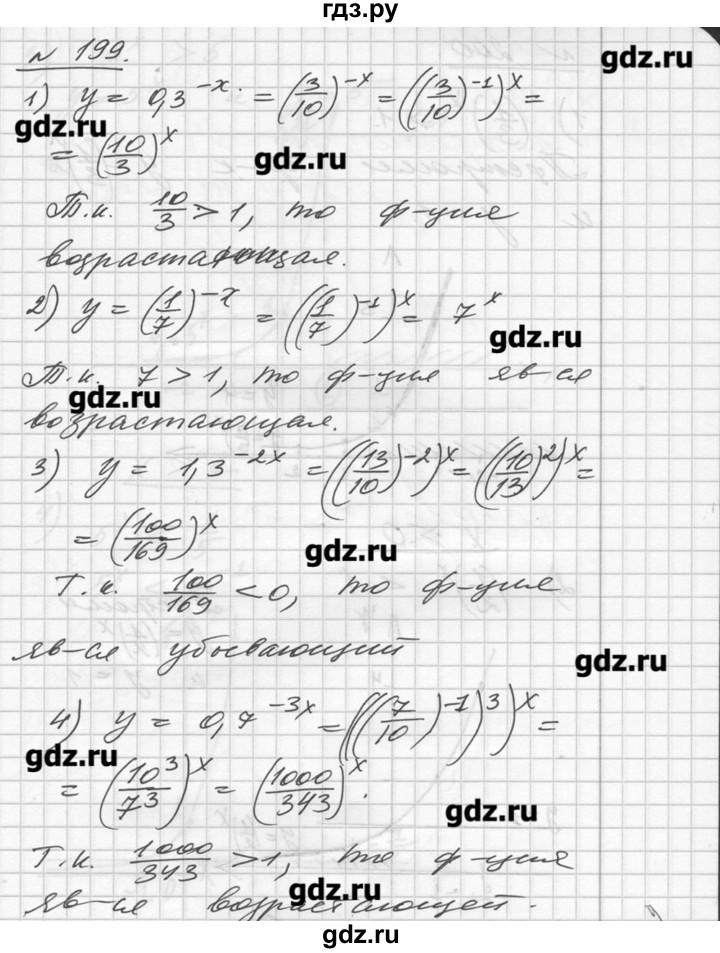 гдз.ру
№ 199.
gdz.ru
1) y = 0,3^(-x) = (3/10)^(-x) = ((3/10)^(-1))^x =
gdz.ru
= (10/3)^x
gdz.ru
Т.к. 10/3 > 1, то ф-ция
возрастающая.
2) y = (1/7)^(-x) = ((1/7)^(-1))^x = 7^x
gdz.ru
Т.к. 7 > 1, то ф-ция яв-ся
gdz.ru
возрастающая.
3) y = 1,3^(-2x) = ((13/10)^(-2))^x = ((10/13)^2)^x =
= (100/169)^x
gdz.ru
Т.к. 100/169 < 0, то ф-ция
яв-ся убывающий
gdz.ru
4) y = 0,7^(-3x) = (((7/10)^(-1))^3)^x =
gdz.ru
= (10^3/7^3)^x = (1000/343)^x.
gdz.ru
Т.к. 1000/343 > 1, то ф-ция
gdz.ru
яв-ся возрастающей.
gdz.ru